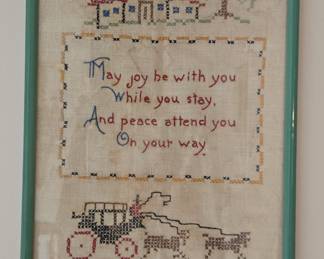 May joy be with you
While you stay,
And peace attend you
On your way.